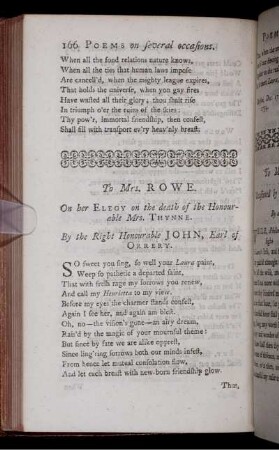 166 POEMS on ſeveral occaſions.
When all the fond relations nature knows,
When all the ties that human laws impoſe
Are cancell'd, when the mighty league expires,
That holds the univerſe, when yon gay fires
Have waſted all their glory; thou ſhalt riſe
In triumph o'er the ruins of the ſkies:
Thy pow'r, immortal friendſhip, then confeſt,
Shall fill with tranſport ev'ry heav'nly breaſt.
To Mrs. ROWE.
On her ELEGY on the death of the Honour-
able Mrs. THYNNE.
By the Right Honourable JOHN, Earl of
ORRERY.
SO ſweet you ſing, ſo well your Laura paint,
Weep ſo pathetic a departed ſaint,
That with freſh rage my ſorrows you renew,
And call my Henrietta to my view.
Before my eyes the charmer ſtands confeſt,
Again I ſee her, and again am bleſt.
Oh, no—the viſion's gone—an airy dream,
Rais'd by the magic of your mournful theme:
But ſince by fate we are alike oppreſt,
Since ling'ring ſorrows both our minds infeſt,
From hence let mutual conſolation flow,
And let each breaſt with new-born friendſhip glow.
Thus,